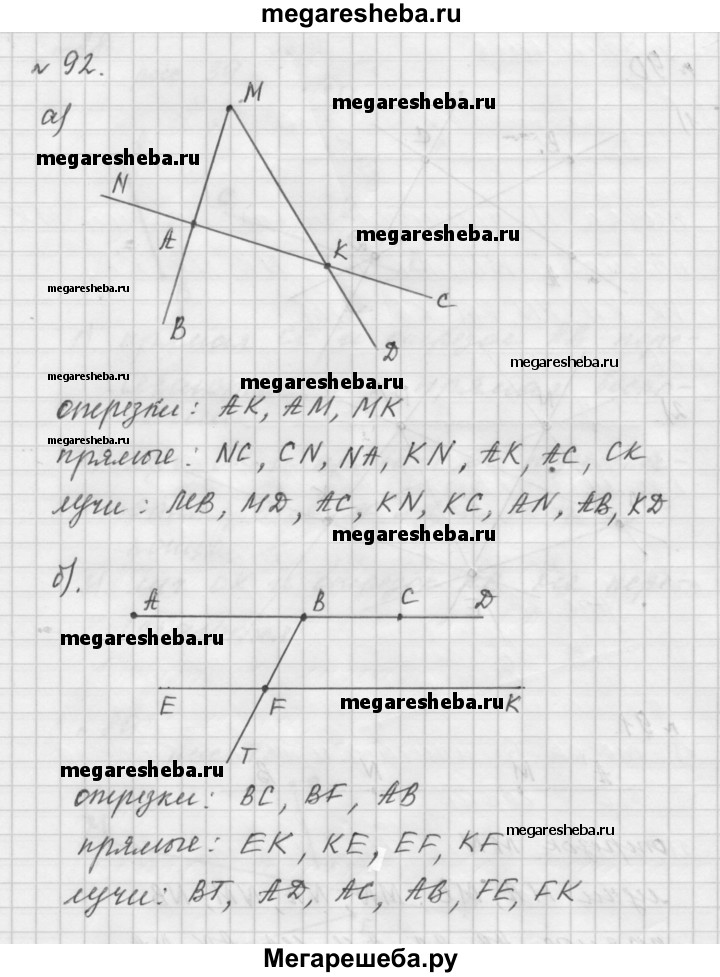 megaresheba.ru
№ 92.
а)
M
megaresheba.ru
megaresheba.ru
N
A
K
megaresheba.ru
megaresheba.ru
B
C
D
megaresheba.ru
megaresheba.ru
megaresheba.ru
отрезки: AK, AM, MK
megaresheba.ru
прямые: NC, CN, NA, KN, AK, AC, CK
лучи: MB, MD, AC, KN, KC, AN, AB, KD
megaresheba.ru
б).
A B C D
megaresheba.ru
E F K
megaresheba.ru
T
megaresheba.ru
отрезки: BC, BF, AB
megaresheba.ru
прямые: EK, KE, EF, KF
лучи: BT, AD, AC, AB, FE, FK
Мегарешеба.ру